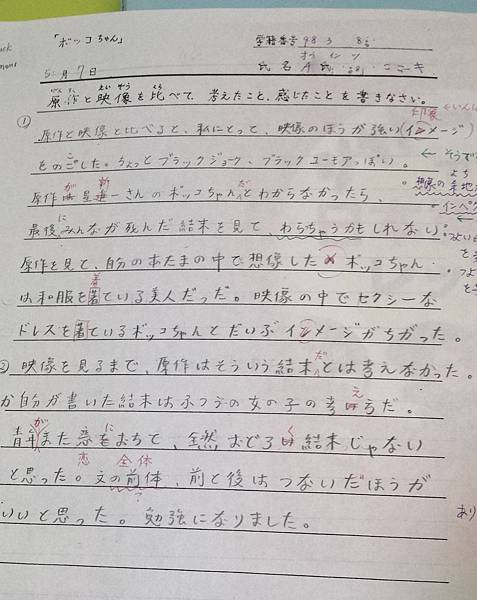 「ボッコちゃん」
学籍番号 98 3
5月7日
氏名
原作と映像を比べて、考えたこと、感じたことを書きなさい。
① 印象
原作と映像と比べると、私にとって、映像のほうが強い(イメージ)
をのこした。ちょっとブラックジョーク、ブラックユーモアっぽい。
原作が星新一さんのボッコちゃんだとわからなかったら、
最後にみんなが死んだ結末を見て、わらちゃうかもしれない。
原作を見て、自分のあたまの中で想像したボッコちゃん
は和服を着ている美人だった。映像の中でセクシーな
ドレスを着ているボッコちゃんとだいぶイメージがちがった。
② 映像を見るまで、原作はそういう結末だとは考えなかった。
か自分が書いた結末はふつうの女の子の考え方だ。
青年がまた恋におちて、全然おどろく結末じゃない
と思った。文の前体、前と後はつないだほうが
恋 全体
いいと思った。勉強になりました。